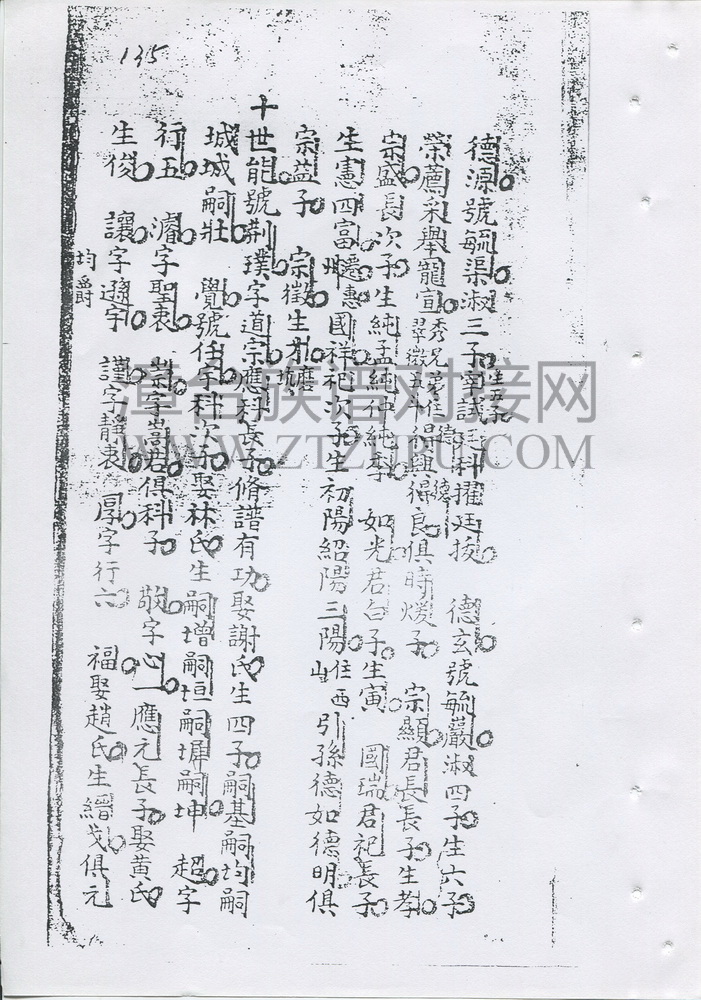 135
德源號毓渠淑三子生五子廷試廷科擢廷掞 德玄號毓巖淑四子生六子
榮薦采舉寵宣秀兄弟住翠微五斗得興得良俱時煖子 宗顯君長長子生孝
宗盛長次子生純孟純仲純季 如光君台子生寅 國瑞君祀長子
生憲四富國祥祀次子生初陽紹陽三陽住西山引孫德如德明俱
宗益子 宗徵生
十世能號荆璞字道宗應科長子脩譜有功娶謝氏生四子嗣基嗣均嗣
城城嗣壯 覺號任宇科次子娶林氏生嗣增嗣垣嗣墀嗣坤 超字
行五 濬字聖衷 崇字嵩君俱科子 敬字心一應元長子娶黃氏
生俊 讓字遜宇 謹字靜衷 厚字行六 福娶趙氏生縉俱元
均爵
漳台族谱对接网
WWW.ZTZUPU.COM